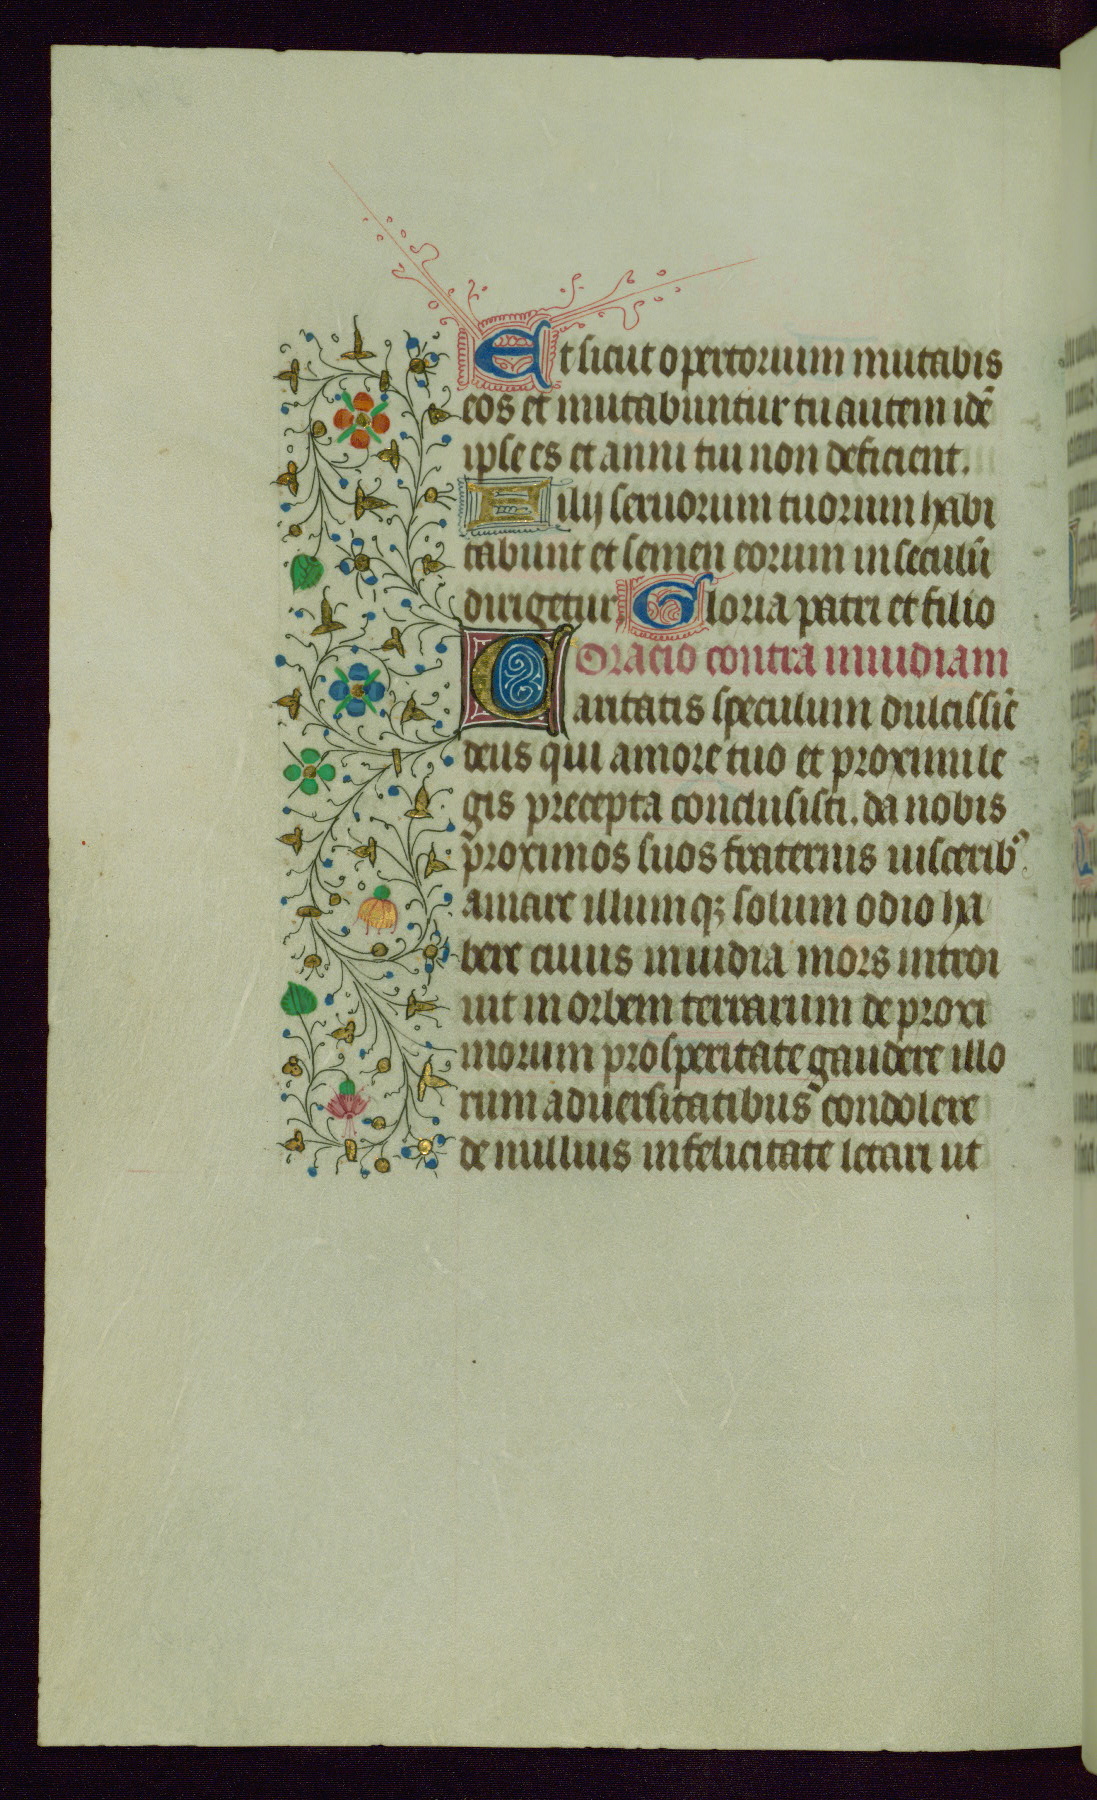 Et sicut opertorium mutabis
eos et mutabuntur tu autem idē
ipse es et anni tui non deficient.
Filij seruorum tuorum habi
tabunt et semen eorum in seculū
dirigetur Gloria patri et filio
Oracio contra inuidiam
Caritatis speculum dulcissīe
deus qui amore tuo et proximi le
gis precepta conclusisti. da nobis
proximos suos fraternis uiscerib⁹
amare illumq; solum odio ha
bere cuius inuidia mors introi
uit in orbem terrarum de proxi
morum prosperitate gaudere illo
rum aduersitatibus condolere
de nullius infelicitate letari ut